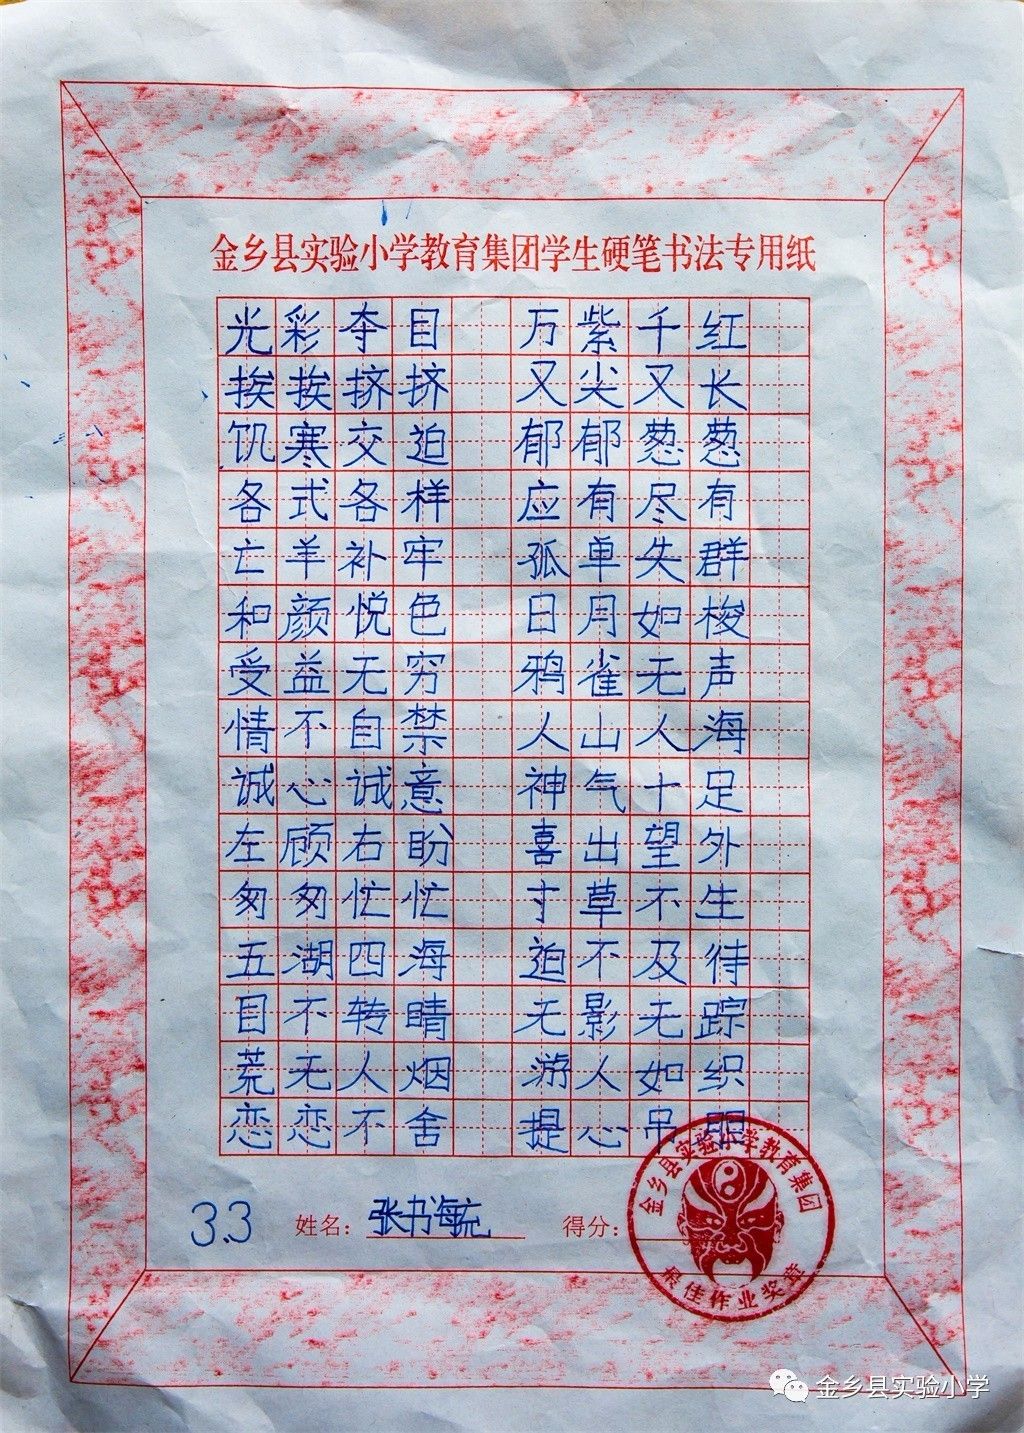 金乡县实验小学教育集团学生硬笔书法专用纸
光彩夺目 万紫千红
挨挨挤挤 又尖又长
饥寒交迫 郁郁葱葱
各式各样 应有尽有
亡羊补牢 孤单失群
和颜悦色 日月如梭
受益无穷 鸦雀无声
情不自禁 人山人海
诚心诚意 神气十足
左顾右盼 喜出望外
匆匆忙忙 寸草不生
五湖四海 迫不及待
目不转睛 无影无踪
荒无人烟 游人如织
恋恋不舍 提心吊胆
3.3 姓名: 张书海 得分:
金乡县实验小学教育集团
最佳作业奖章
金乡县实验小学